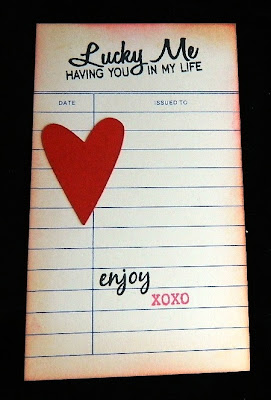 Lucky Me
HAVING YOU IN MY LIFE
DATE ISSUED TO
enjoy
XOXO